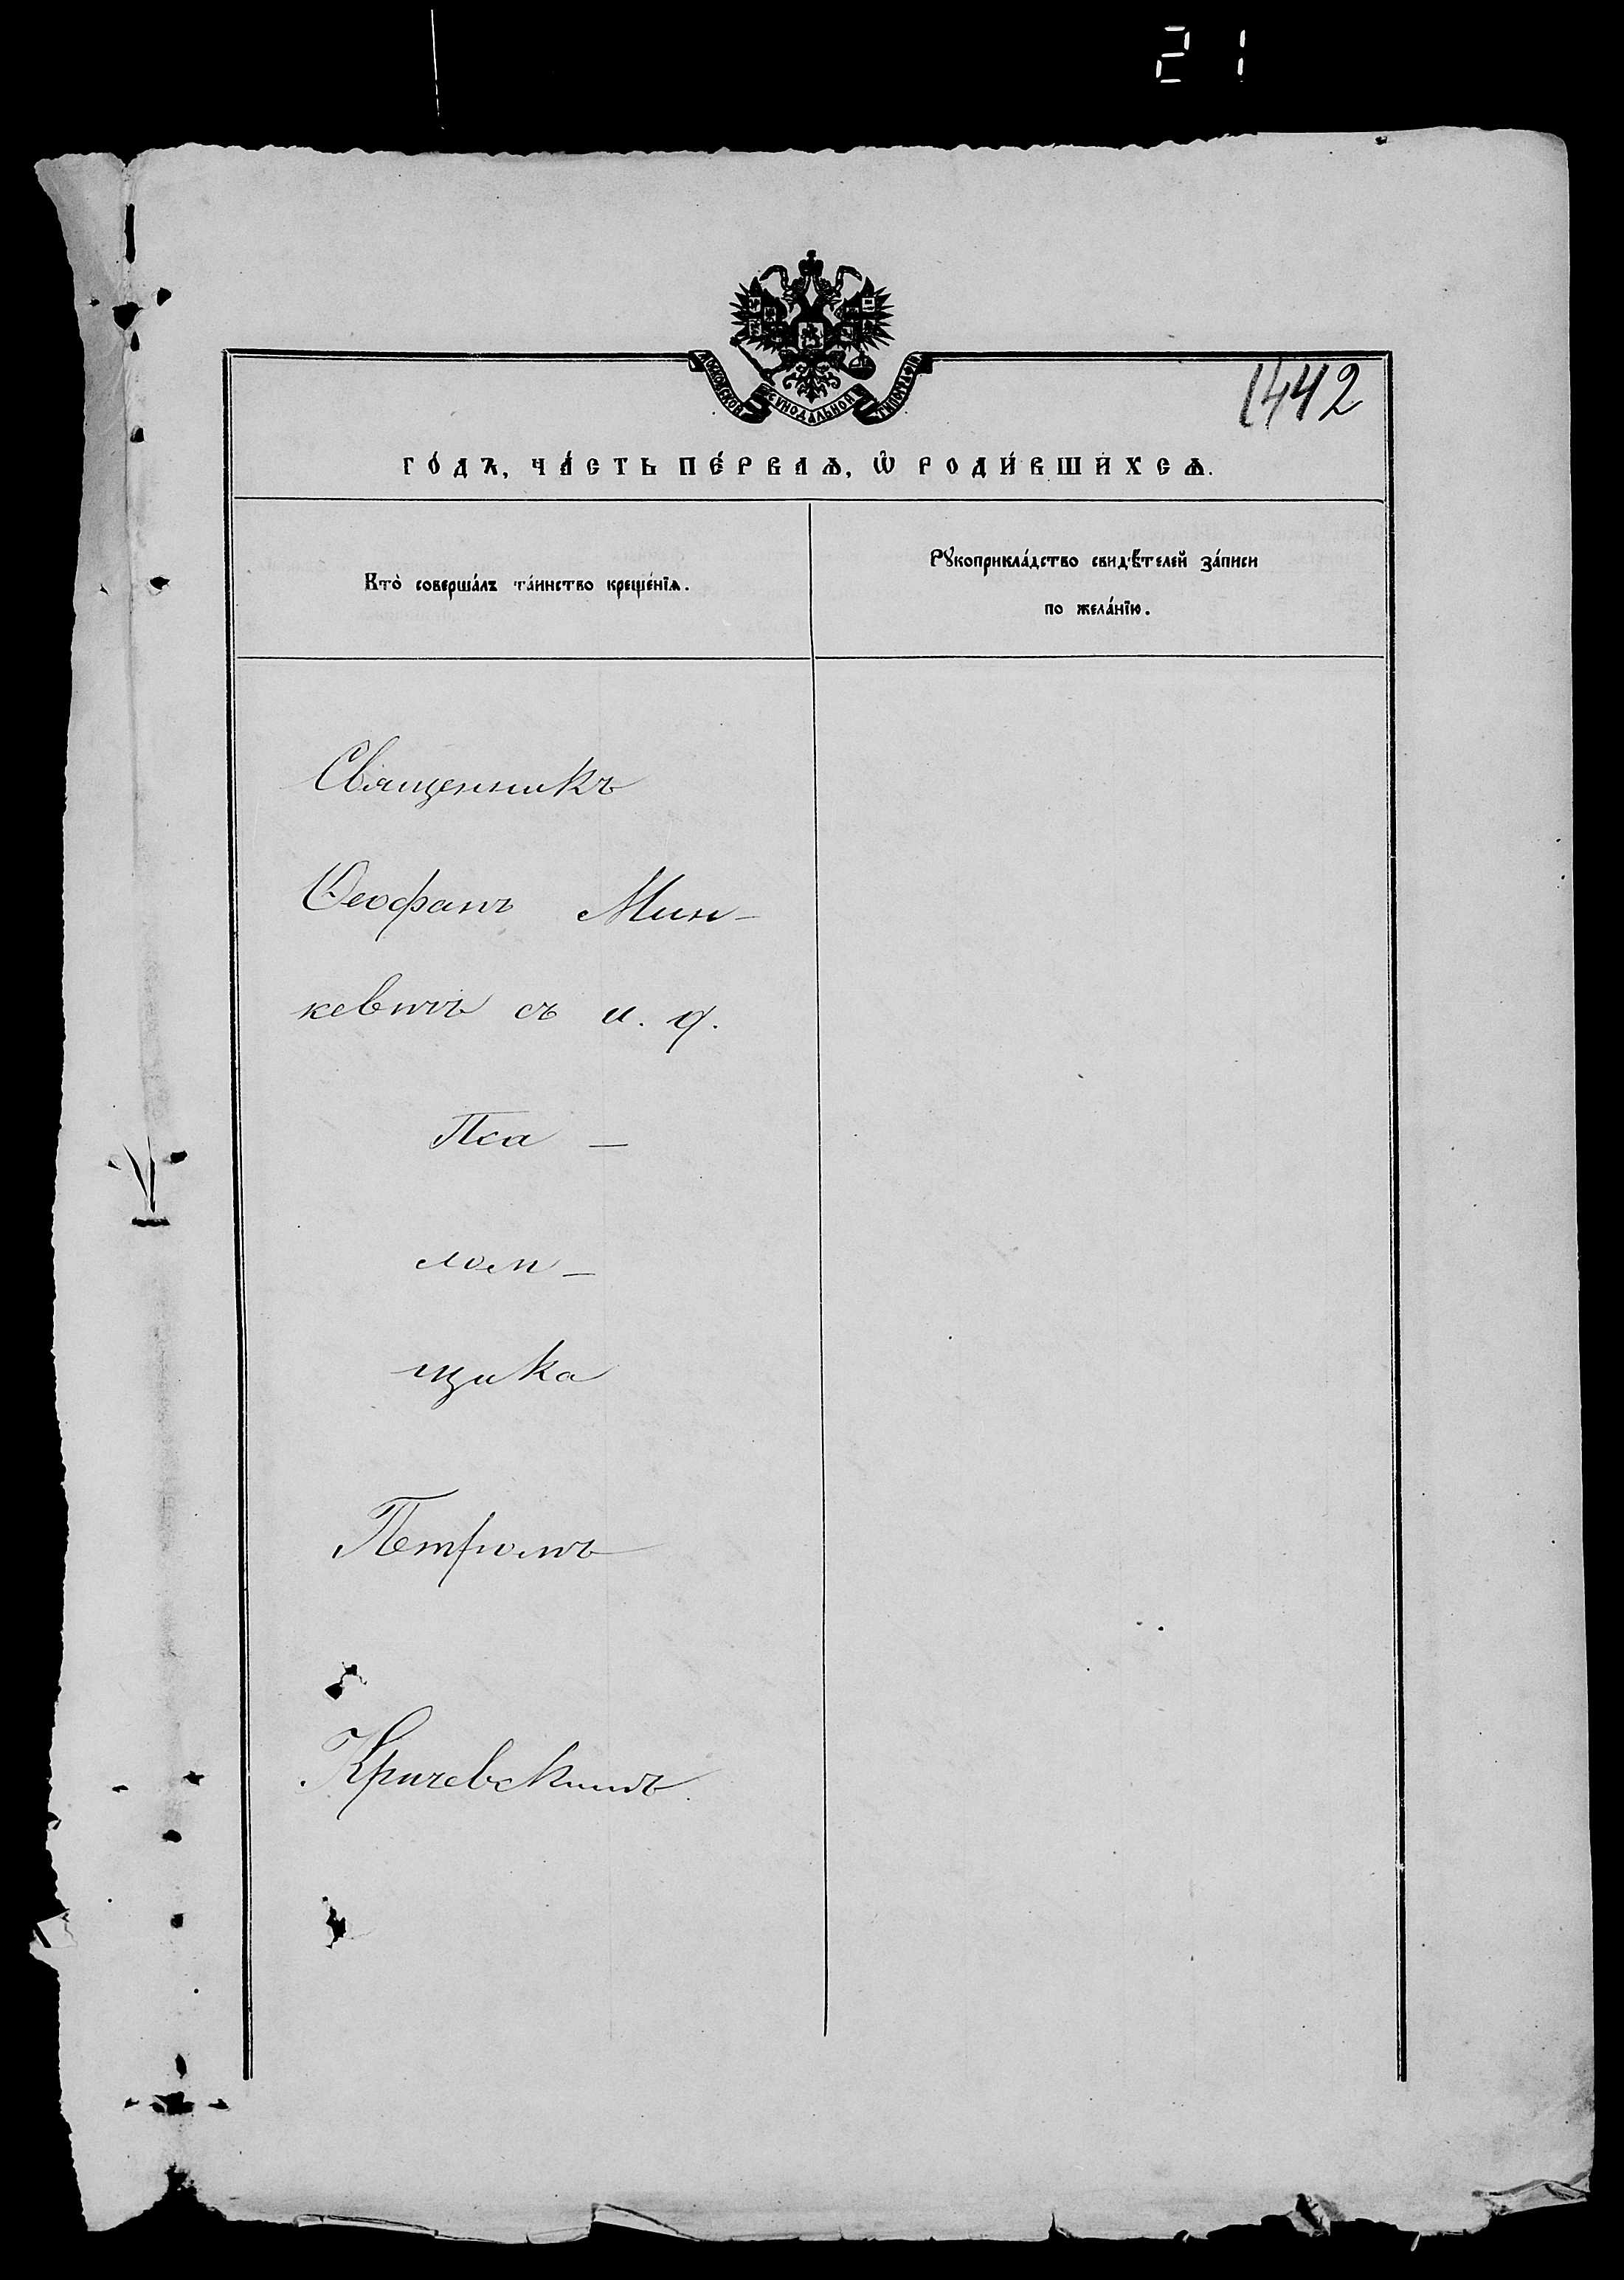 21
МОСКОВСКОЙ СѴНОДАЛЬНОЙ ТИПОГРАФІИ
1442
ГО́ДЪ, ЧА́СТЬ ПЕ́РВАѦ, Ѡ҆ РОДИ́ВШИХСѦ.
Кто̀ соверша́лъ та́инство креще́нїѧ.
Рꙋкоприкла́дство свидѣ́телей за́писи
по жела́нїю.
Священникъ
Ѳеофанъ Мин-
кевичъ съ и. д.
Пса -
лом -
щика
Петромъ
Кричевскимъ.